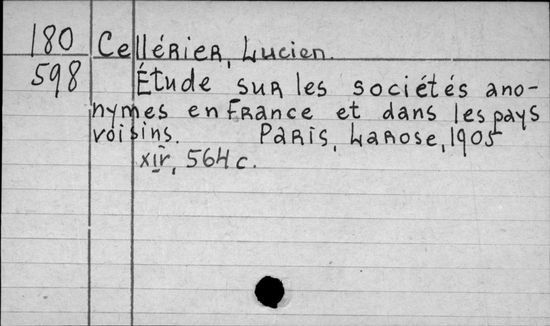 180 Cellérier, Lucien.
598 Étude sur les sociétés ano-
nymes en France et dans les pays
voisins. Paris, Larose, 1905
XIV, 564 c.